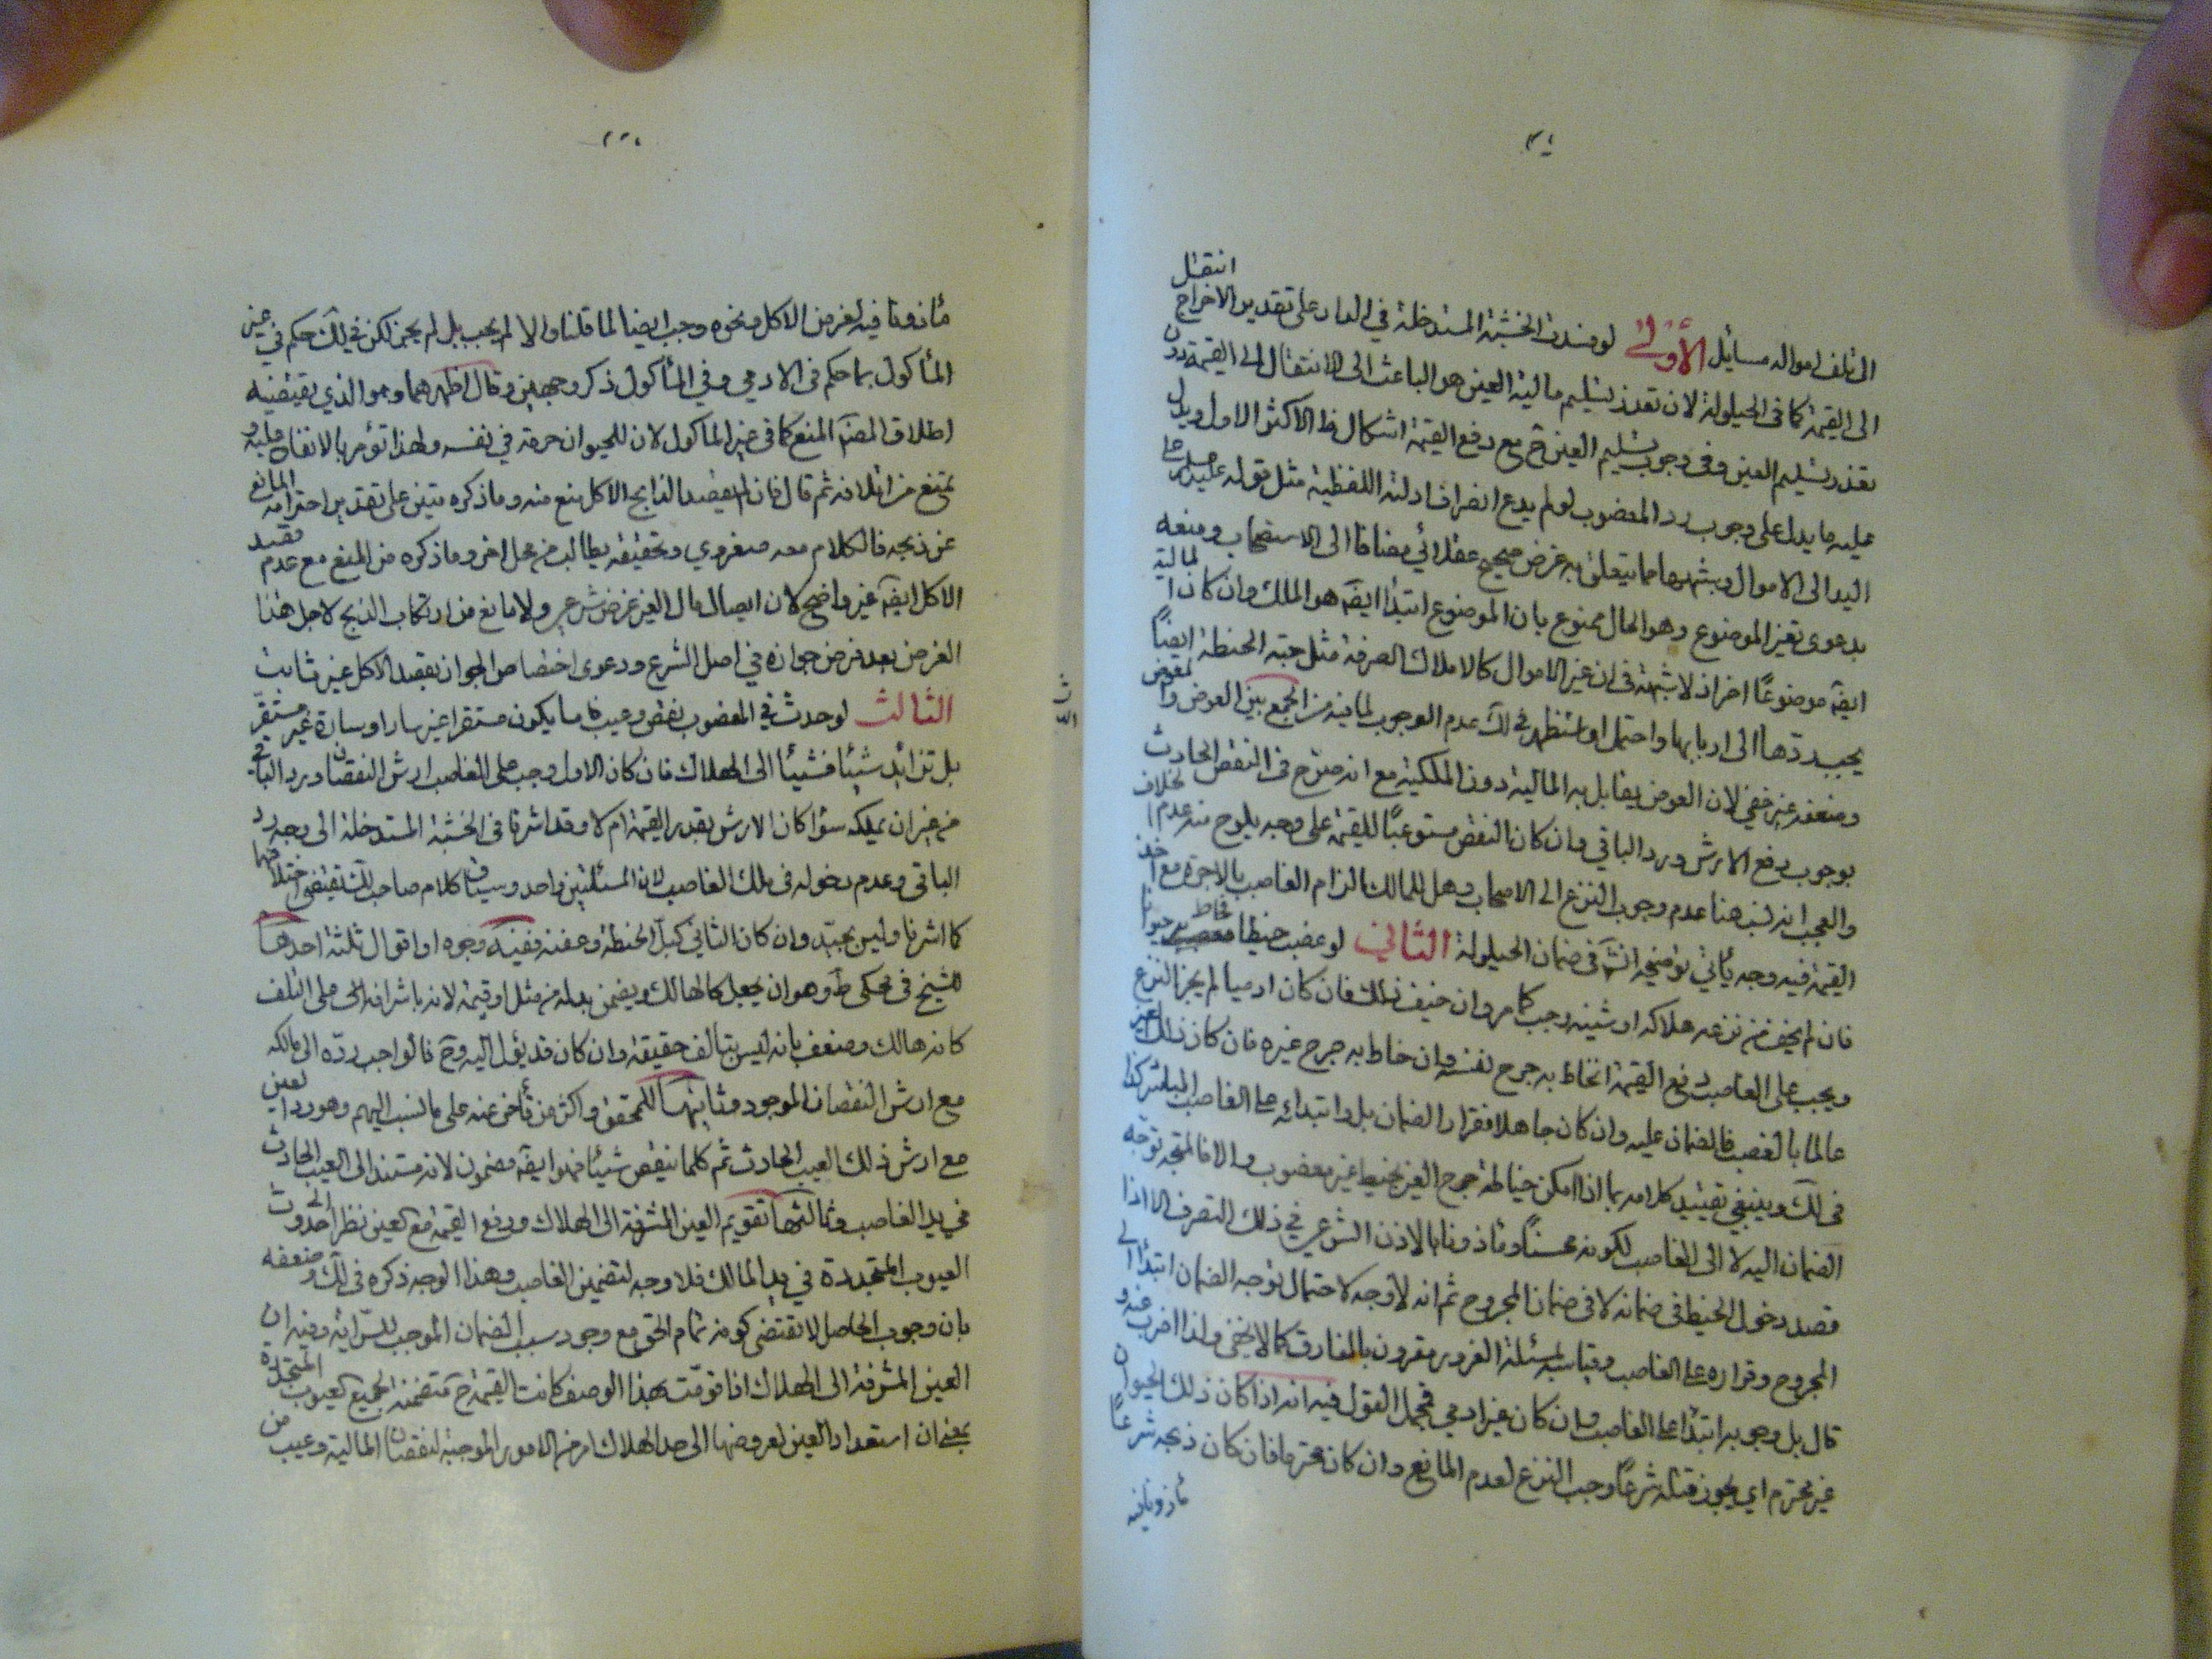 انتقل
الى تلف امواله مسائل الأولى لو فسدت الخشبة المستدخلة في البناء على تقدير الاخراج
الى القيمة كما في الحيلولة لان تعذر تسليم مالية العين هو الباعث الى الانتقال الى القيمة دون
تعذر تسليم العين وفي وجوب تسليم العين ح مع دفع القيمة اشكال ظ الاكثر الاول ويدل
عليه ما يدل على وجوب رد المغصوب لو لم يدع انصراف ادلته اللفظية مثل قوله على
اليد الى الاموال وشبهها مما يتعلق به غرض صحيح عقلائي مضافا الى الاستصحاب ومنعه
بدعوى تغير الموضوع وهو المال ممنوع بان الموضوع ابتداء ايضه هو الملك وان كان المالية
ايضه موضوعًا اخر اذ لا شبهة في ان غير الاموال كالاملاك الصرفة مثل حبة الحنطة ايضًا
يجب ردّها الى اربابها واحتمل او استظهر في لك عدم الوجوب لما فيه من الجمع بين العوض والمعوض
وضعفه غير خفي لان العوض يقابل به المالية دون الملكية مع انه صرح في النقص الحادث
بوجوب دفع الارش ورد الباقي وان كان النقص مستوعبًا للقيمة على وجه يلوح منه عدم الخلاف
والعجب انه نسب هنا عدم وجوب النزع الى الاصحاب وهل للمالك الزام الغاصب بالاجرة مع اخذ
القيمة فيه وجه يأتي توضيحه انش في ضمان الحيلولة الثاني لو غصب خيطا فخاط به حيوانا
فان لم يخف من نزعه هلاكه او شينه وجب كما مر وان خيف ذلك فان كان ادميا لم يجز النزع
ويجب على الغاصب دفع القيمة ان خاط به جرح نفسه وان خاط به جرح غيره فان كان ذلك الغير
عالما بالغصب فالضمان عليه وان كان جاهلا فقرار الضمان بل وابتدائه على الغاصب المباشر كذا
في لك وينبغي تقييد كلامه بما اذا امكن خياطة جرح الغير بخيط غير مغصوب والا فالمتجه توجه
الضمان اليه لا الى الغاصب لكونه محسنًا ومأذونا بالاذن الشرعي في ذلك التصرف الا اذا
قصد دخول الخيط في ضمانه لا في ضمان المجروح ثم انه لا وجه لاحتمال توجه الضمان ابتداء الى
المجروح وقراره على الغاصب وقياسه بمسئلة الغرور مقرون بالفارق كما لا يخفى ولذا اضرب عنه و
قال بل وجوبه ابتداء على الغاصب وان كان غير ادمي فمجمل القول فيه انه اذا كان ذلك الحيوان
غير محترم اي يجوز قتله شرعًا وجب النزع لعدم المانع وان كان محترما فان كان ذبحه شرعًا
مأذونا فيه
مأذونا فيه لغرض الاكل ونحوه وجب ايضا لما قلنا والا لم يجب بل لم يجز لكن في لك حكم في غير
المأكول بما حكم في الادمي وفي المأكول ذكر وجهين وقال اظهرهما وهو الذي يقتضيه
اطلاق المصنف المنع كما في غير الماكول لان للحيوان حرمة في نفسه ولهذا تؤمر بالانفاق عليه و
تمنع من اتلافه ثم قال فان لم يقصد الذابح الاكل منع منه وما ذكره متين على تقدير احترامه المانع
عن ذبحه فالكلام معه صغروي وتحقيقه يطالب من محل اخر وما ذكره من المنع مع عدم قصد
الاكل ايضه غير واضح لان ايصال مال الغير غرض شرعي ولا مانع من ارتكاب الذبح لاجل هذا
الغرض بعد فرض جوازه في اصل الشرع ودعوى اختصاص الجواز بقصد الاكل غير ثابت
الثالث لو حدث في المغصوب نقص وعيب فاما يكون مستقرا غير سار او سارة غير مستقرّ
بل تزايد شيئا فشيئا الى الهلاك فان كان الاول وجب على الغاصب ارش النقصان ورد الباقي
من غير ان يملكه سواء كان الارش بقدر القيمة ام لا وقد اشرنا في الخشبة المستدخلة الى وجه رد
الباقي وعدم دخوله في ملك الغاصب لان المسئلتين واحد وسياق كلام صاحب لك يقتضي اختلافهما
كما اشرنا وليس بجيّد وان كان الثاني كبلّ الحنطة وعفنه ففيه وجوه او اقوال ثلثة احدها
للشيخ في محكي ط وهو ان يجعل كالهالك ويضمن بدله من مثل او قيمة لانه باشرافه الى على التلف
كانه هالك وضعف بانه ليس بتالف حقيقة وان كان قد يؤل اليه وح فالواجب ردّه الى مالكه
مع ارش النقصان الموجود وثانيها للمحقق واكثر من تأخر عنه على ما نسب اليهم وهو رد العين
مع ارش ذلك العيب الحادث ثم كلما ينقص شيئا فهو ايضه مضمون لانه مستند الى العيب الحادث
في يد الغاصب وثالثها تقويم العين المشرفة الى الهلاك ودفع القيمة مع العين نظرا الى حدوث
العيوب المتجددة في يد المالك فلا وجه لتضمين الغاصب وهذا الوجه ذكره في لك وضعفه
بان وجوب الحاصل لا يقتضي كونه تمام الحق مع وجود سبب الضمان الموجب للسّراية وفيه ان
العين المشرفة الى الهلاك اذا قومت بهذا الوصف كانت القيمة ح متضمنة لجميع العيوب المتجددة
بمعنى ان استعداد العين لعروضها الى حد الهلاك امر من الامور الموجبة لنقصان المالية وعيب من